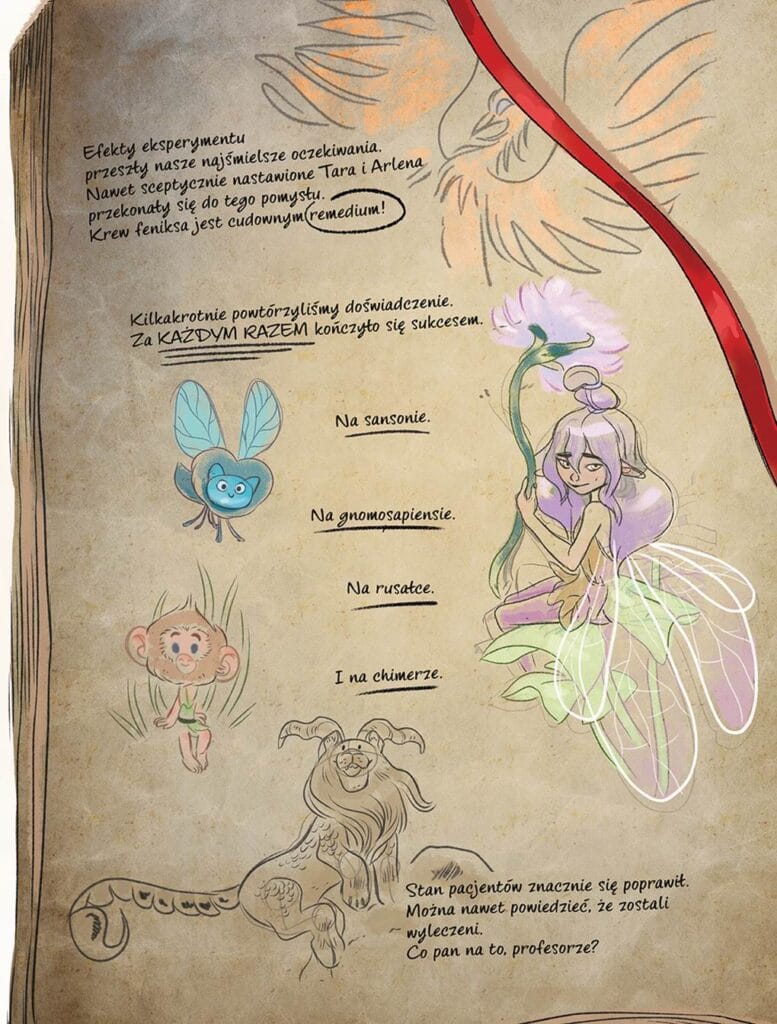 Efekty eksperymentu
przeszły nasze najśmielsze oczekiwania.
Nawet sceptycznie nastawione Tara i Arlena
przekonały się do tego pomysłu.
Krew feniksa jest cudownym remedium!
Kilkakrotnie powtórzyliśmy doświadczenie.
Za KAŻDYM RAZEM kończyło się sukcesem.
Na sansonie.
Na gnomosapiensie.
Na rusałce.
I na chimerze.
Stan pacjentów znacznie się poprawił.
Można nawet powiedzieć, że zostali
wyleczeni.
Co pan na to, profesorze?